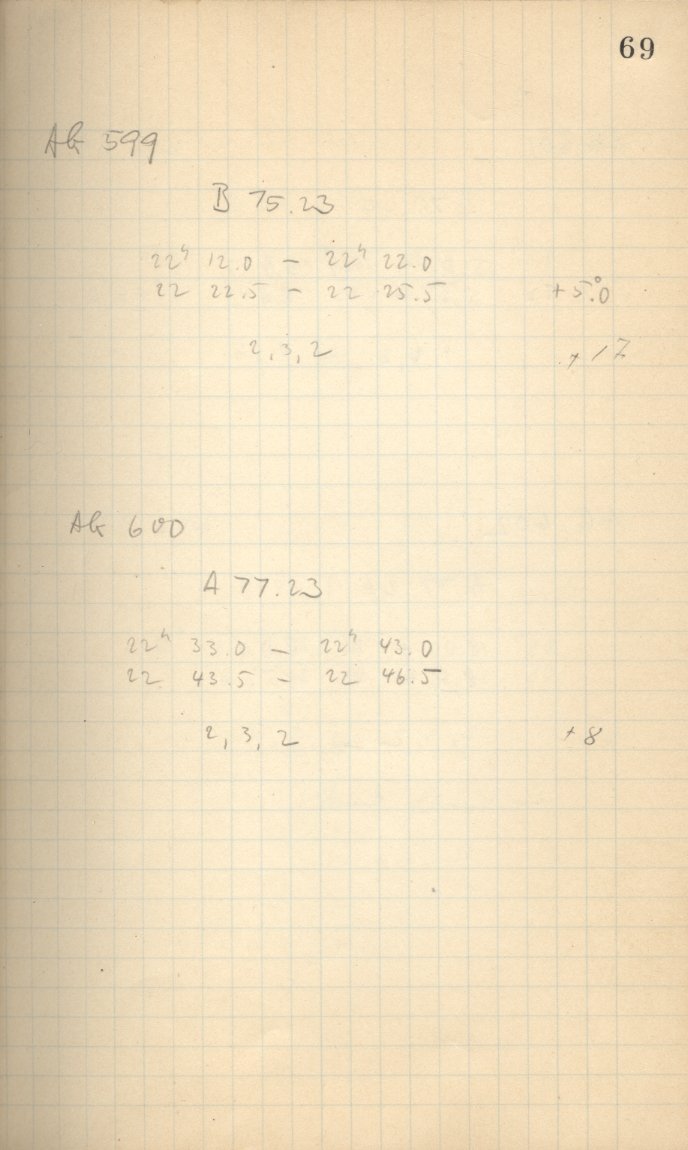 69
AG 599
B 75.23
22ʰ 12.0 – 22ʰ 22.0
22 22.5 – 22 25.5 +5°.0
2, 3, 2 + 17
AG 600
A 77.23
22ʰ 33.0 – 22ʰ 43.0
22 43.5 – 22 46.5
2, 3, 2 + 8